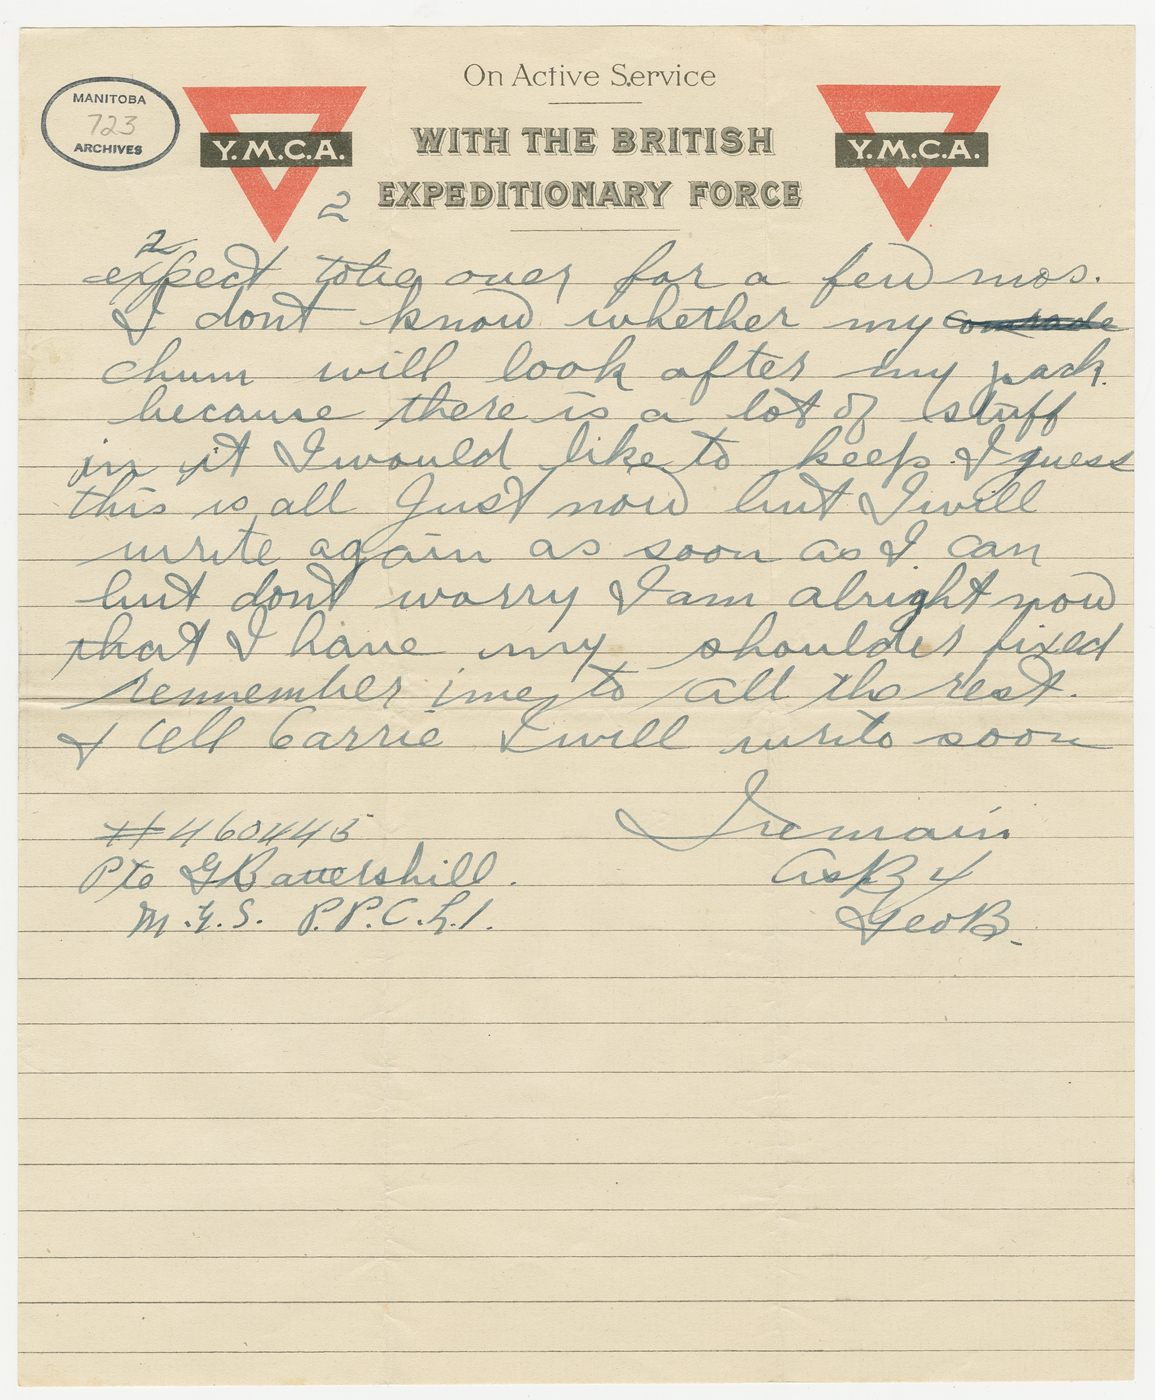 On Active Service
MANITOBA
723
ARCHIVES
Y.M.C.A.
WITH THE BRITISH
Y.M.C.A.
EXPEDITIONARY FORCE
2
2
expect to be over for a few mos.
I dont know whether my comrade
chum will look after my pack
because there is a lot of stuff
in it I would like to keep. I guess
this is all Just now but I will
write again as soon as I can
but dont worry I am alright now
that I have my shoulder fixed
remember me to all the rest.
& tell Carrie I will write soon
I remain
#460445
as B 4
Pte G Battershill.
Geo B.
M.G.S. P.P.C.L.I.